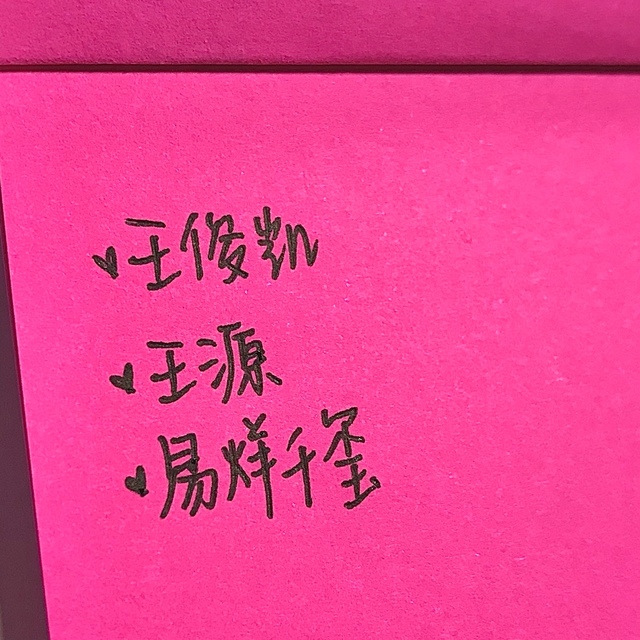 ♥王俊凯
♥王源
♥易烊千玺